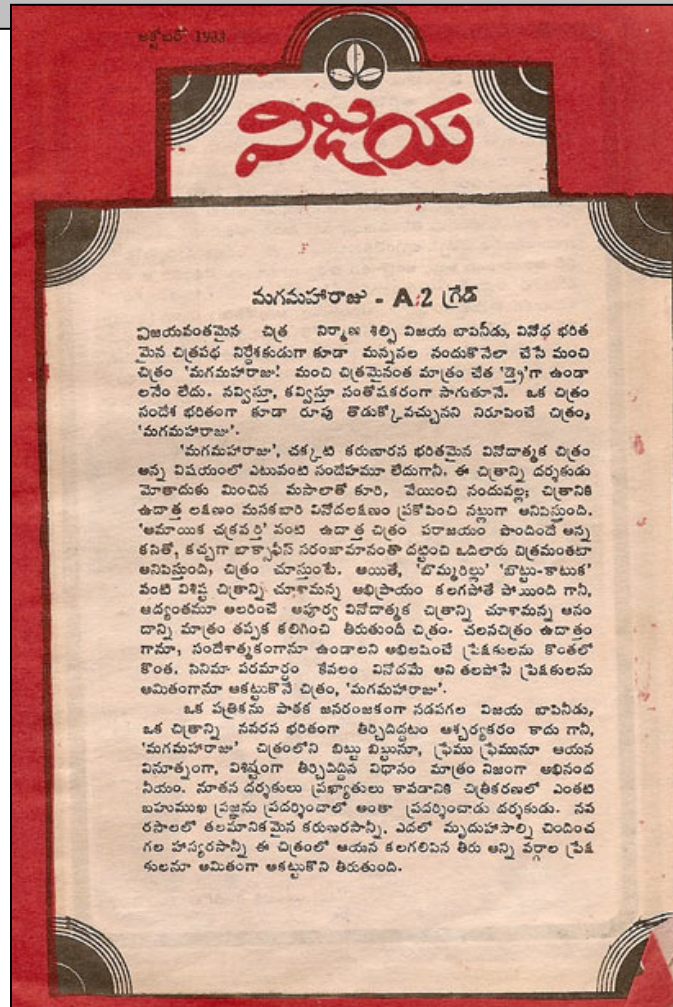 అక్టోబర్ 1983
విజయ
మగమహారాజు - A.2 గ్రేడ్
విజయవంతమైన చిత్ర నిర్మాణ శిల్పి విజయ బాపినీడు, వినోద భరిత
మైన చిత్రపథ నిర్దేశకుడుగా కూడా మన్ననల నందుకొనేలా చేసే మంచి
చిత్రం 'మగమహారాజు! మంచి చిత్రమైనంత మాత్రం చేత 'డ్రై'గా ఉండా
లనేం లేదు. నవ్విస్తూ, కవ్విస్తూ సంతోషకరంగా సాగుతూనే. ఒక చిత్రం
సందేశ భరితంగా కూడా రూపు తొడుక్కోవచ్చునని నిరూపించే చిత్రం,
'మగమహారాజు'.
'మగమహారాజు', చక్కటి కరుణారస భరితమైన వినోదాత్మక చిత్రం
అన్న విషయంలో ఎటువంటి సందేహమూ లేదుగానీ. ఈ చిత్రాన్ని దర్శకుడు
మోతాదుకు మించిన మసాలాతో కూరి, వేయించి నందువల్ల; చిత్రానికి
ఉదాత్త లక్షణం మసకబారి వినోదలక్షణం ప్రకోపించి నట్లుగా అనిపిస్తుంది.
'అమాయిక చక్రవర్తి' వంటి ఉదాత్త చిత్రం పరాజయం పొందిందే అన్న
కసితో, కచ్చగా బాక్సాఫీస్ సరంజామానంతా దట్టించి ఒదిలారు చిత్రమంతటా
అనిపిస్తుంది, చిత్రం చూస్తుంటే. అయితే, 'బొమ్మరిల్లు' 'బొట్టు-కాటుక'
వంటి విశిష్ట చిత్రాన్ని చూశామన్న అభిప్రాయం కలగపోతే పోయింది గానీ,
ఆద్యంతమూ అలరించే అపూర్వ వినోదాత్మక చిత్రాన్ని చూశామన్న ఆనం
దాన్ని మాత్రం తప్పక కలిగించి తీరుతుందీ చిత్రం. చలనచిత్రం ఉదాత్తం
గానూ, సందేశాత్మకంగానూ ఉండాలని అభిలషించే ప్రేక్షకులను కొంతలో
కొంత. సినిమా పరమార్థం కేవలం వినోదమే అని తలపోసే ప్రేక్షకులను
అమితంగానూ ఆకట్టుకొనే చిత్రం, 'మగమహారాజు'.
ఒక పత్రికను పాఠక జనరంజకంగా నడపగల విజయ బాపినీడు,
ఒక చిత్రాన్ని నవరస భరితంగా తీర్చిదిద్దటం ఆశ్చర్యకరం కాదు గానీ,
'మగమహారాజు' చిత్రంలోని బిట్టు బిట్టునూ, ఫ్రేము ఫ్రేమునూ ఆయన
వినూత్నంగా, విశిష్టంగా తీర్చిదిద్దిన విధానం మాత్రం నిజంగా అభినంద
నీయం. నూతన దర్శకులు ప్రఖ్యాతులు కావడానికి చిత్రీకరణలో ఎంతటి
బహుముఖ ప్రజ్ఞను ప్రదర్శించాలో అంతా ప్రదర్శించాడు దర్శకుడు. నవ
రసాలలో తలమానికమైన కరుణరసాన్నీ, ఎదలో మృదుహాసాల్ని చిందించ
గల హాస్యరసాన్నీ ఈ చిత్రంలో ఆయన కలగలిపిన తీరు అన్ని వర్గాల ప్రేక్ష
కులనూ అమితంగా ఆకట్టుకొని తీరుతుంది.